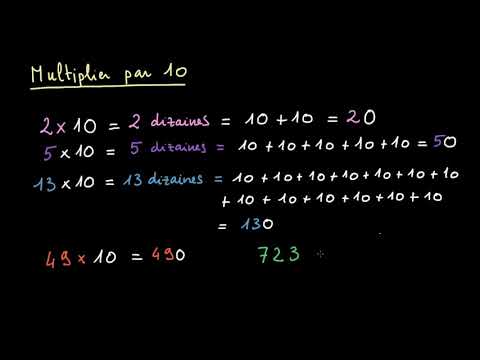 Multiplier par 10
2 x 10 = 2 dizaines = 10 + 10 = 20
5 x 10 = 5 dizaines = 10 + 10 + 10 + 10 + 10 = 50
13 x 10 = 13 dizaines = 10 + 10 + 10 + 10 + 10 + 10 + 10
+ 10 + 10 + 10 + 10 + 10 + 10
= 130
49 x 10 = 490 723